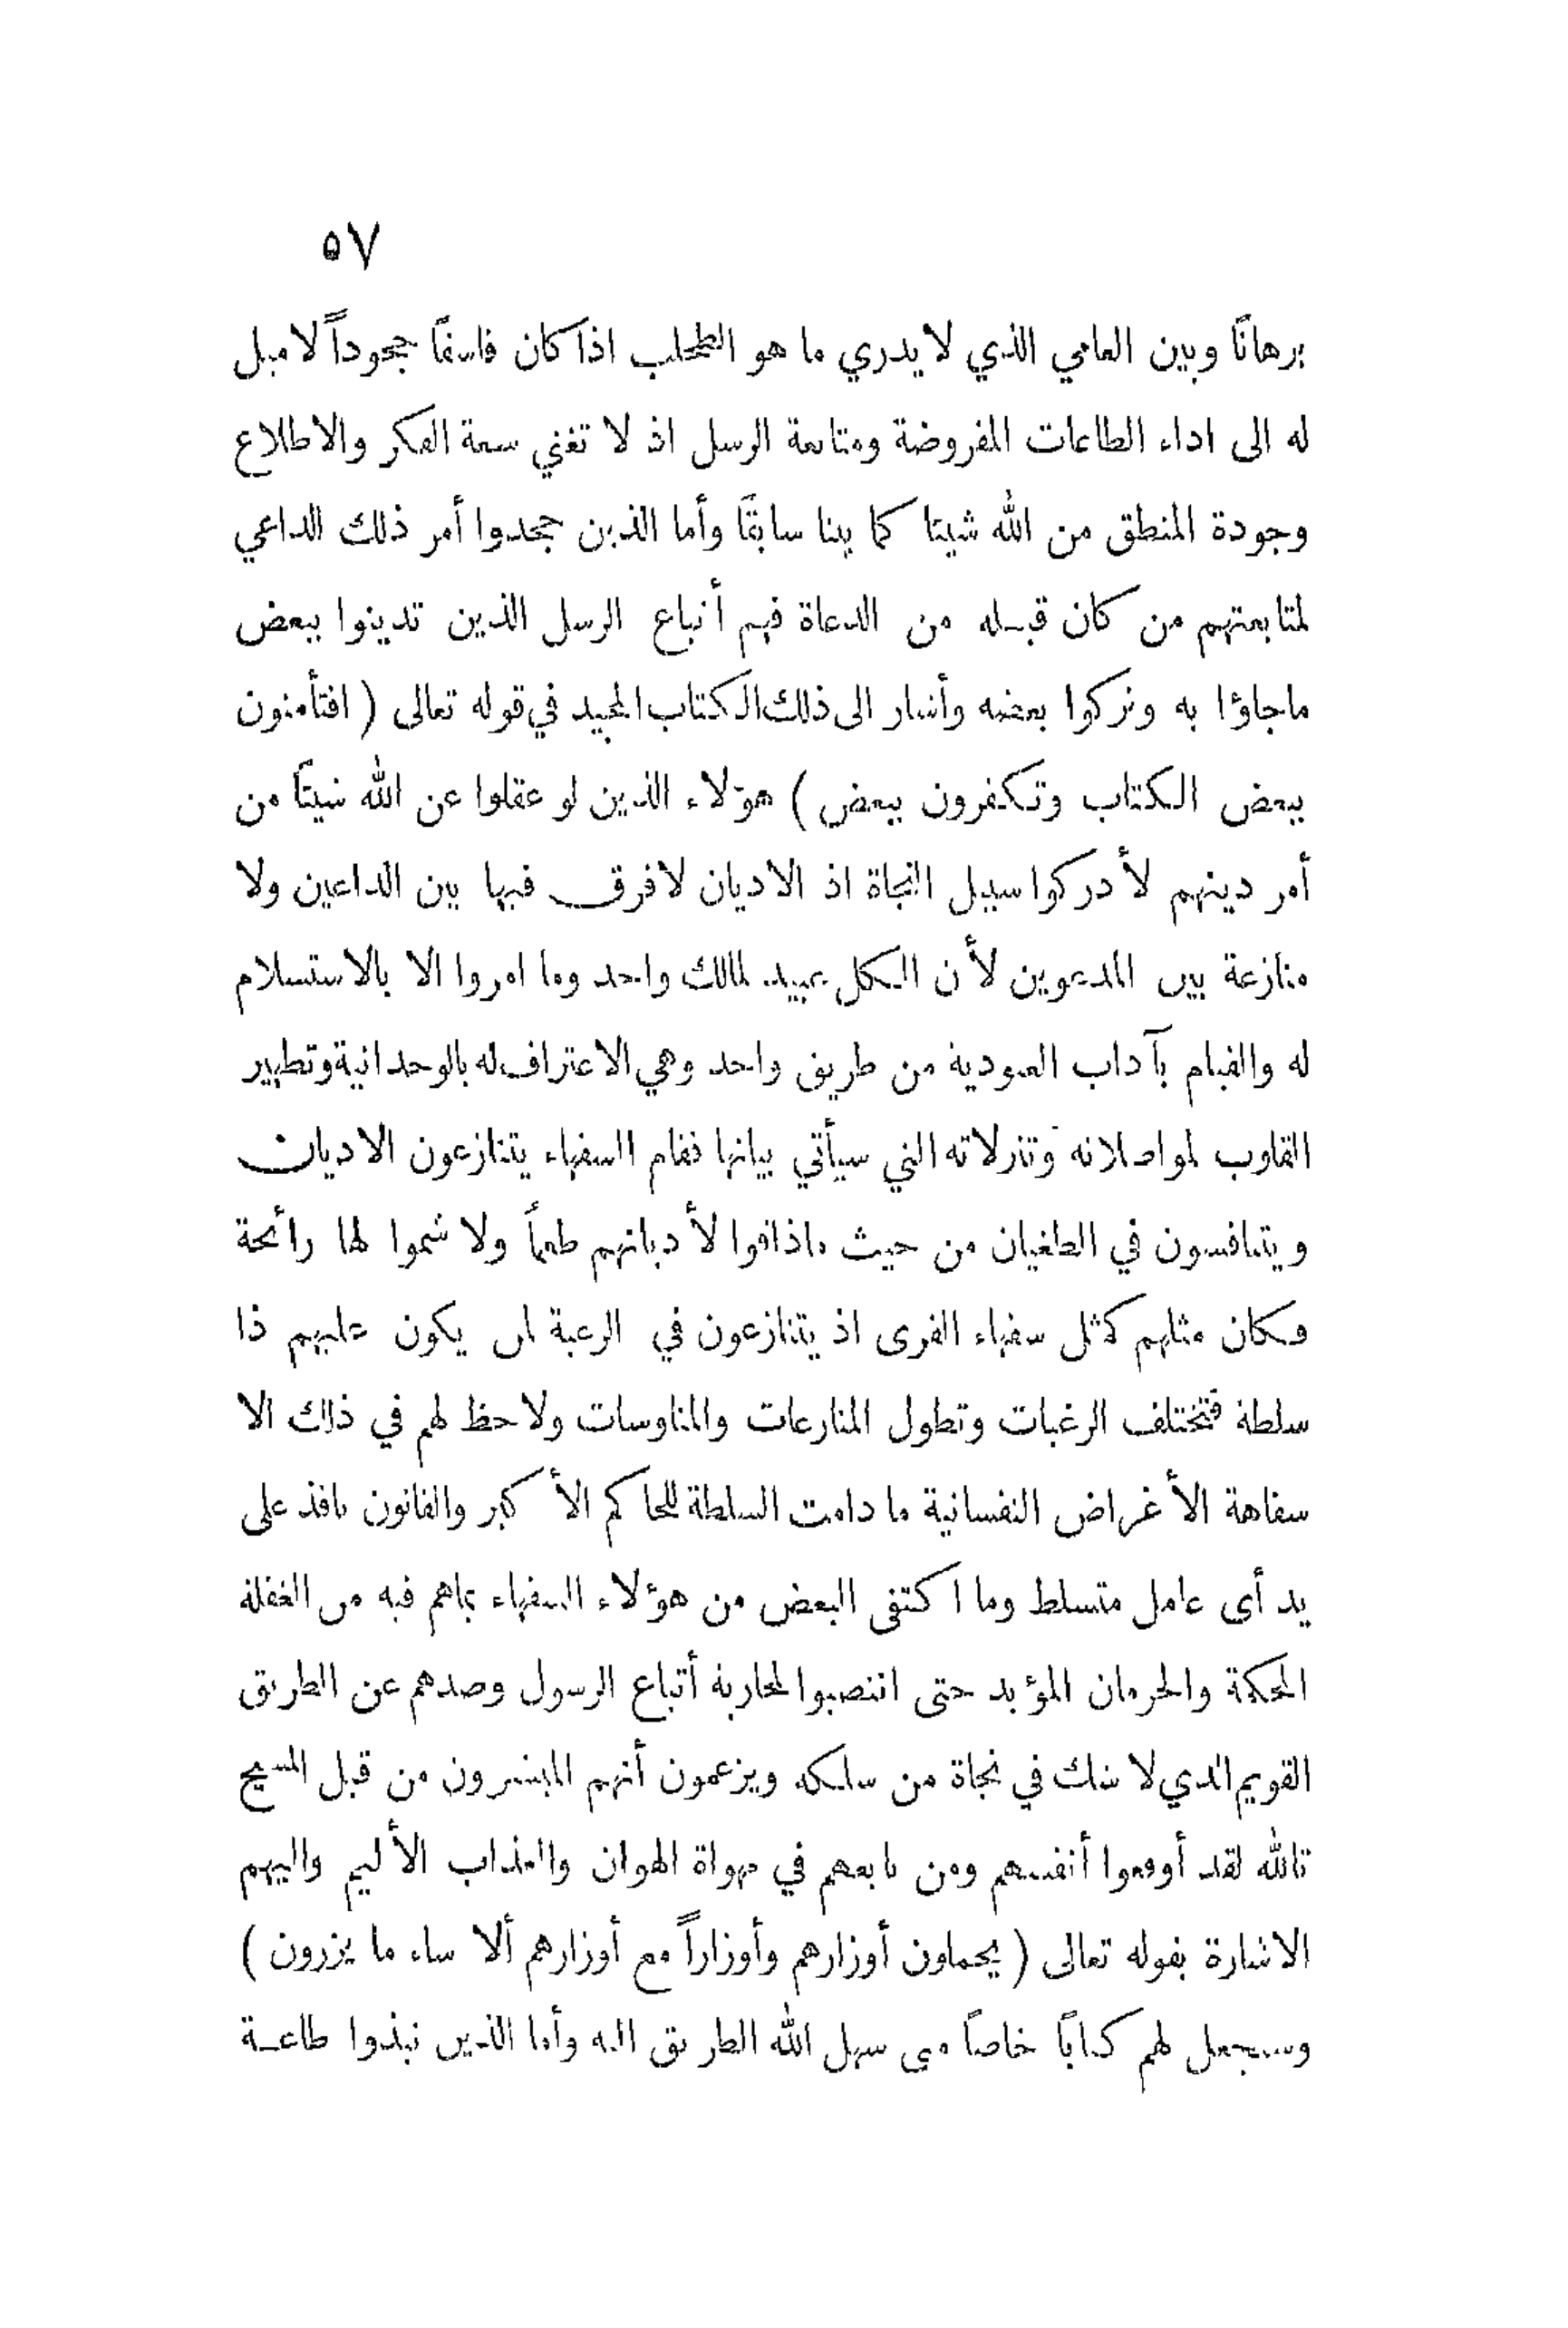 ٥٧
برهانًا وبين العامي الذي لا يدري ما هو الطحلب اذا كان فاسقًا جحوداً لا ميل
له الى اداء الطاعات المفروضة ومتابعة الرسل اذ لا تغني سعة الفكر والاطلاع
وجودة المنطق من الله شيئا كما بينا سابقًا وأما الذين جحدوا أمر ذلك الداعي
لمتابعتهم من كان قبله من الدعاة فهم أتباع الرسل الذين تدينوا ببعض
ماجاؤا به وتركوا بعضه وأشار الى ذلك الكتاب المجيد في قوله تعالى ( افتأمنون
ببعض الكتاب وتكفرون ببعض ) هؤلاء الذين لو عقلوا عن الله شيئًا من
أمر دينهم لأدركوا سبيل النجاة اذ الاديان لا فرق فيها بين الداعين ولا
منازعة بين المدعوين لأن الكل عبيد لمالك واحد وما امروا الا بالاستسلام
له والقيام بآداب العبودية من طريق واحد وهي الاعتراف له بالوحدانية وتطهير
القلوب لمواصلاته وتنزلاته التي سيأتي بيانها فقام السفهاء يتنازعون الاديان
ويتنافسون في الطغيان من حيث ماذاقوا لأديانهم طعماً ولا شموا لها رائحة
فكان مثلهم كمثل سفهاء القرى اذ يتنازعون في الرغبة لمن يكون عليهم ذا
سلطة فتختلف الرغبات وتطول المنازعات والمناوسات ولا حظ لهم في ذلك الا
سفاهة الأغراض النفسانية ما دامت السلطة للحاكم الأكبر والقانون نافذ على
يد أى عامل متسلط وما اكتفى البعض من هؤلاء السفهاء بماهم فيه من الغفلة
المحكمة والحرمان المؤبد حتى انتصبوا لمحاربة أتباع الرسول وصدهم عن الطريق
القويم الذي لا شك في نجاة من سلكه ويزعمون أنهم المبشرون من قبل المسيح
تالله لقد أوقعوا أنفسهم ومن تابعهم في مهواة الهوان والعذاب الأليم واليهم
الاشارة بقوله تعالى ( يحملون أوزارهم وأوزاراً مع أوزارهم ألا ساء ما يزرون )
وسنجعل لهم كتابًا خاصًا متى سهل الله الطريق اليه وأما الذين نبذوا طاعة